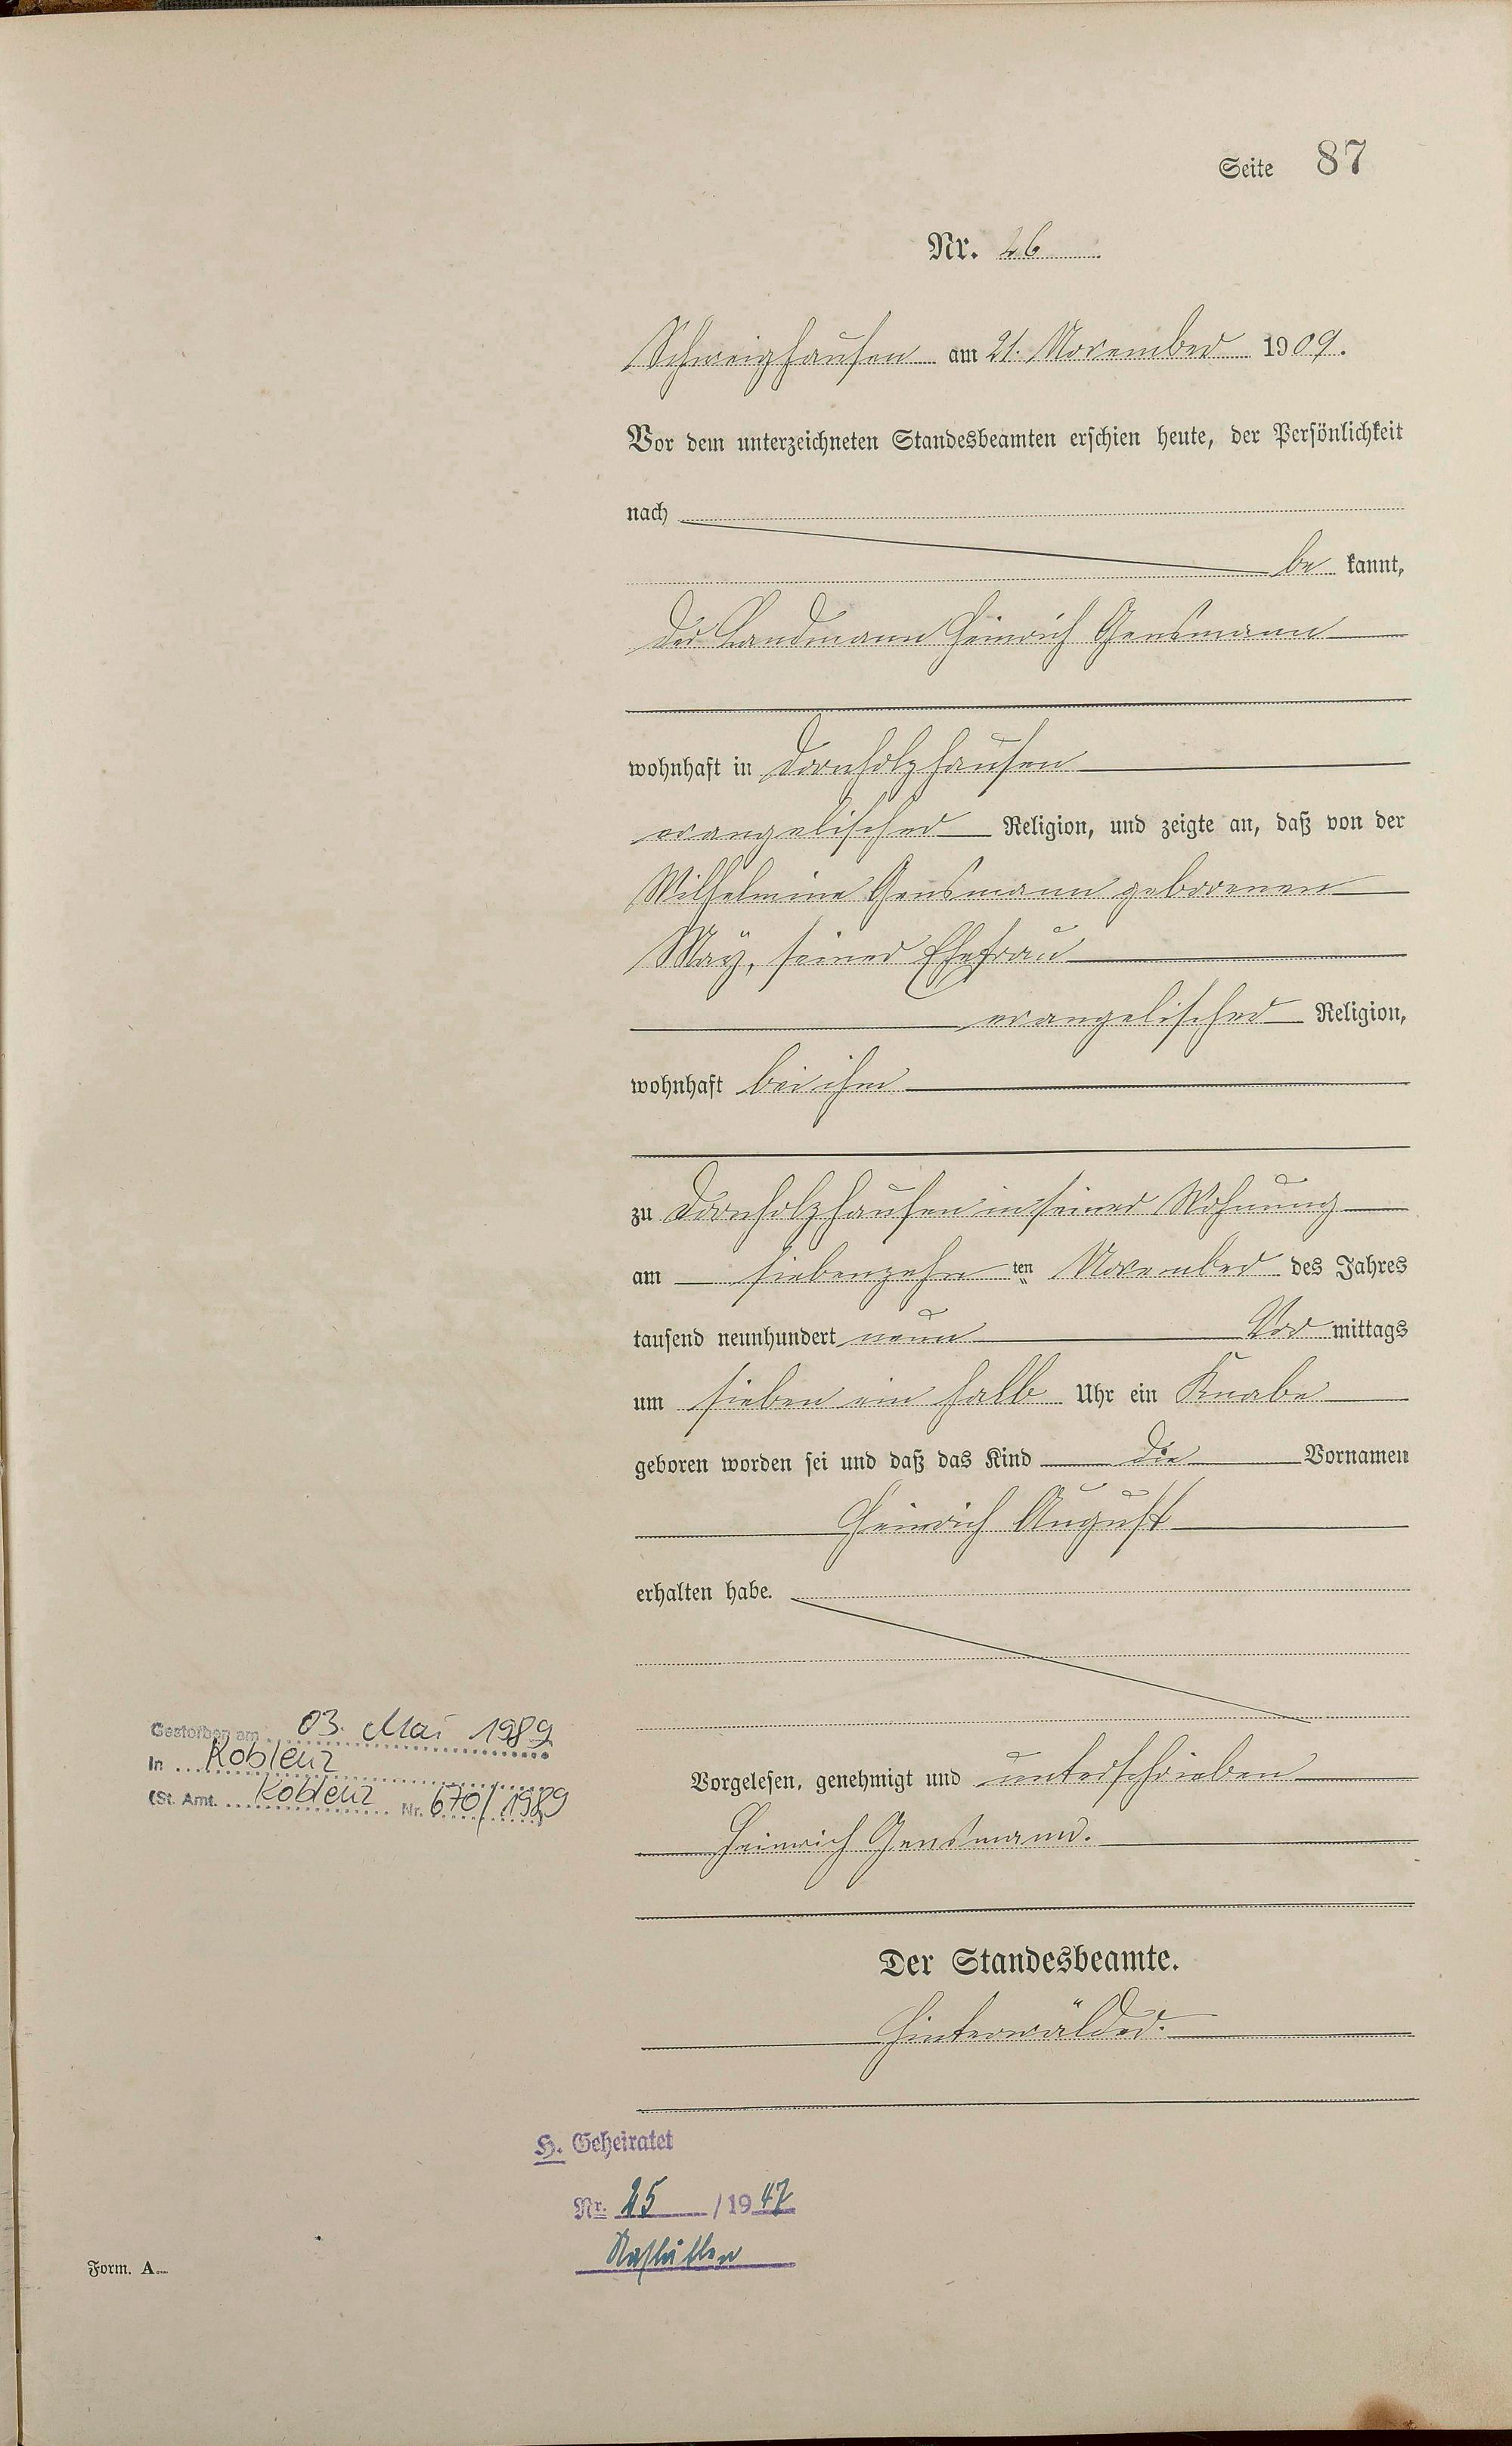 Seite 87
Nr. 26
Schweighausen am 21. November 1909.
Vor dem unterzeichneten Standesbeamten erschien heute, der Persönlichkeit
nach
be kannt,
der Landmann Heinrich Gensmann
wohnhaft in Dornholzhausen
evangelischer Religion, und zeigte an, daß von der
Wilhelmine Gensmann geborenen
May, seiner Ehefrau
evangelischer Religion,
wohnhaft bei ihm
zu Dornholzhausen in seiner Wohnung
am siebenzehn ten November des Jahres
tausend neunhundert neun Vor mittags
um sieben ein halb Uhr ein Knabe
geboren worden sei und daß das Kind die Vornamen
Heinrich August
erhalten habe.
Gestorben am 03. Mai 1989
In Koblenz
(St. Amt. Koblenz Nr. 670/1989
Vorgelesen, genehmigt und unterschrieben
Heinrich Gensmann.
Der Standesbeamte.
Hinterwälder.
H. Geheiratet
Nr. 25 / 1947
Nastätten
Form. A.